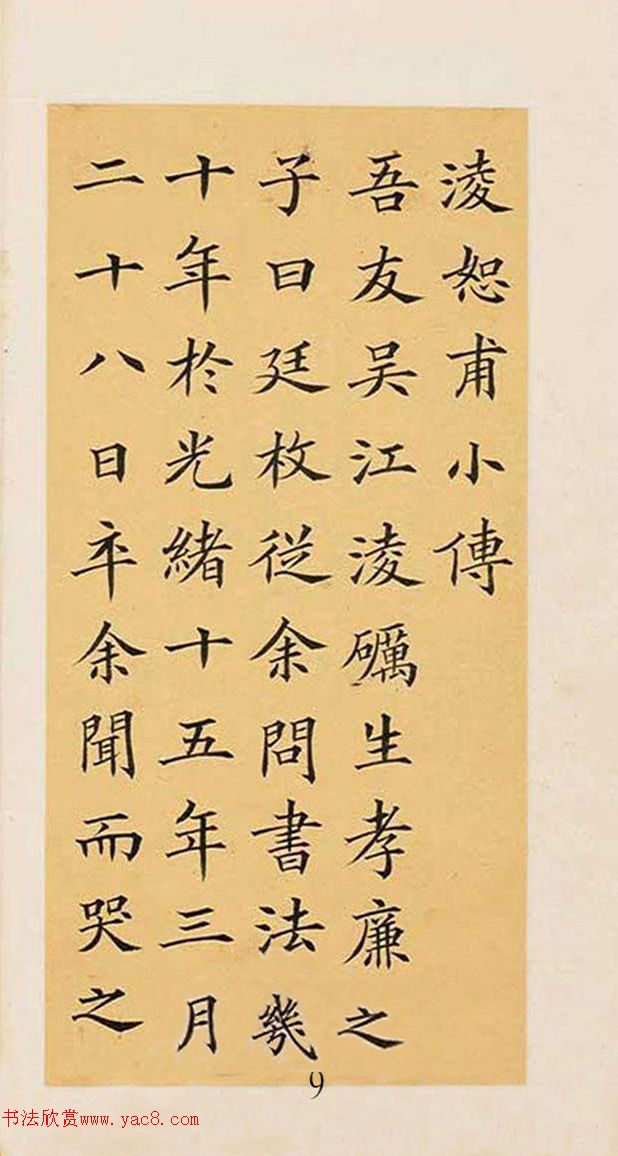 淩恕甫小傳
吾友吴江淩礪生孝廉之
子曰廷枚從余問書法幾
十年於光緒十五年三月
二十八日卒余聞而哭之
9
书法欣赏www.yac8.com